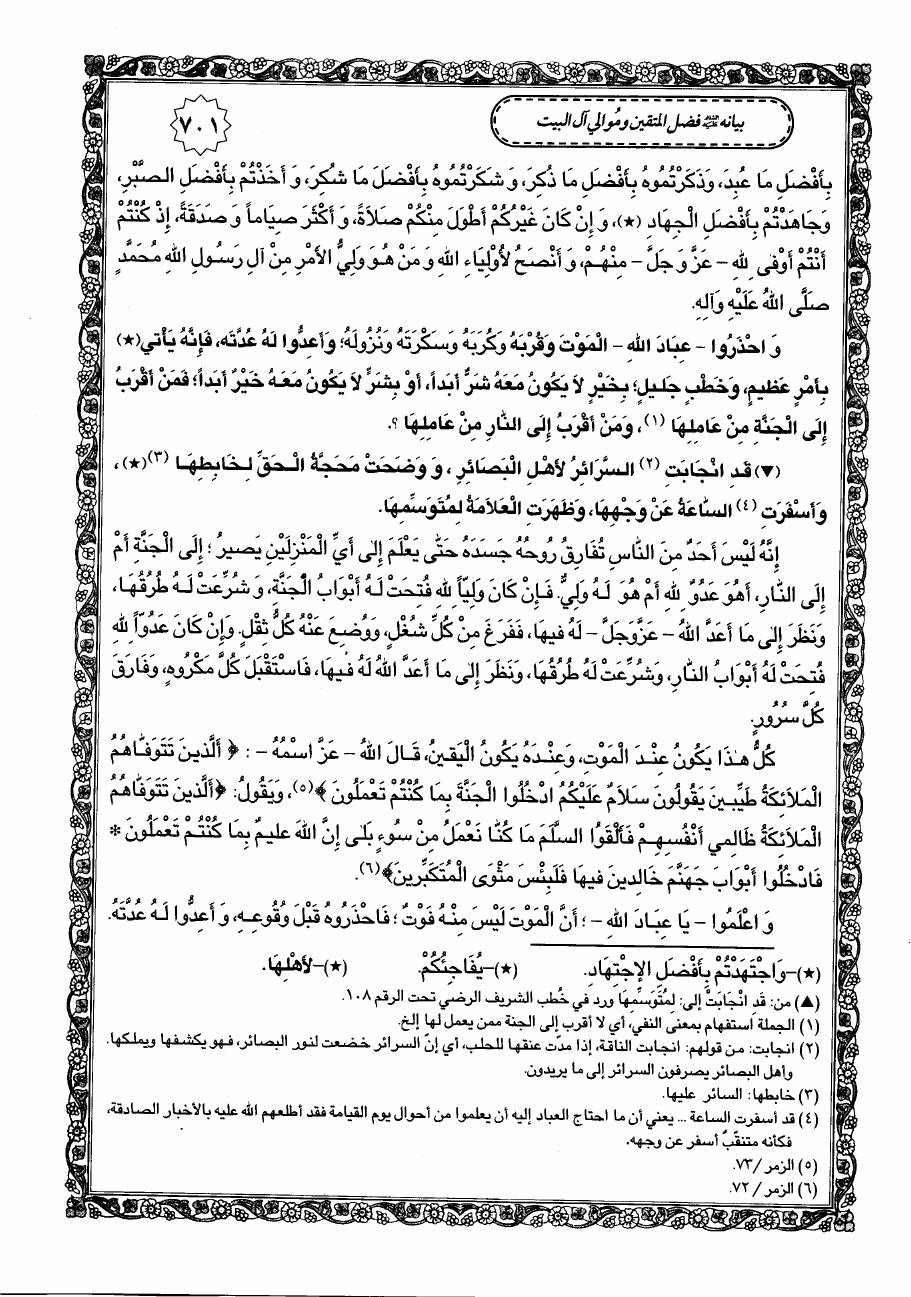 بيانه عليه السلام فضل المتقين ومُوالي آل البيت
٧٠١
بِأَفْضَلِ مَا عُبِدَ، وَذَكَرْتُمُوهُ بِأَفْضَلِ مَا ذُكِرَ، وَ شَكَرْتُمُوهُ بِأَفْضَلَ مَا شُكِرَ، وَ أَخَذْتُمْ بِأَفْضَلِ الصَّبْرِ،
وَجَاهَدْتُمْ بِأَفْضَلِ الْجِهَادِ (★)، وَ إِنْ كَانَ غَيْرُكُمْ أَطْوَلَ مِنْكُمْ صَلَاةً، وَ أَكْثَرَ صِيَاماً وَ صَدَقَةً، إِذْ كُنْتُمْ
أَنْتُمْ أَوْفَى لِلهِ - عَزَّ وَ جَلَّ - مِنْهُمْ، وَ أَنْصَحَ لِأَوْلِيَاءِ اللهِ وَ مَنْ هُوَ وَلِيُّ الأَمْرِ مِنْ آلِ رَسُولِ اللهِ مُحَمَّدٍ
صَلَّى اللهُ عَلَيْهِ وَآلِهِ.
وَ احْذَرُوا - عِبَادَ اللهِ - الْمَوْتَ وَقُرْبَهُ وَكُرَبَهُ وَسَكْرَتَهُ وَنُزُولَهُ؛ وَأَعِدُّوا لَهُ عُدَّتَه، فَإِنَّهُ يَأْتي (★)
بِأَمْرٍ عَظِيمٍ، وَخَطْبٍ جَلِيلٍ؛ بِخَيْرٍ لَا يَكُونُ مَعَهُ شَرٌّ أَبَداً، أَوْ بِشَرٍّ لَا يَكُونُ مَعَهُ خَيْرٌ أَبَداً؛ فَمَنْ أَقْرَبُ
إِلَى الْجَنَّةِ مِنْ عَامِلِهَا (١)، وَمَنْ أَقْرَبُ إِلَى النَّارِ مِنْ عَامِلِهَا ؟.
(▼) قَدِ انْجَابَتِ (٢) السَّرَائِرُ لِأَهْلِ الْبَصَائِرِ ، وَ وَضَحَتْ مَحَجَّةُ الْحَقِّ لِخَابِطِهَا (٣) (★) ،
وَأَسْفَرَتِ (٤) السَّاعَةُ عَنْ وَجْهِهَا، وَظَهَرَتِ الْعَلَامَةُ لِمُتَوَسِّمِهَا.
إِنَّهُ لَيْسَ أَحَدٌ مِنَ النَّاسِ تُفَارِقُ رُوحُهُ جَسَدَهُ حَتَّى يَعْلَمَ إِلَى أَيِّ الْمَنْزِلَيْنِ يَصِيرُ ؛ إِلَى الْجَنَّةِ أَمْ
إِلَى النَّارِ، أَهُوَ عَدُوٌّ لِلهِ أَمْ هُوَ لَهُ وَلِيٌّ. فَإِنْ كَانَ وَلِيّاً لِلهِ فُتِحَتْ لَهُ أَبْوَابُ الْجَنَّةِ، وَ شُرِّعَتْ لَهُ طُرُقُهَا،
وَنَظَرَ إِلى مَا أَعَدَّ اللهُ - عَزَّوَجَلَّ - لَهُ فيهَا، فَفَرَغَ مِنْ كُلِّ شُغْلٍ، وَوُضِعَ عَنْهُ كُلُّ ثِقْلٍ. وَإِنْ كَانَ عَدُوّاً لِلهِ
فُتِحَتْ لَهُ أَبْوَابُ النَّارِ، وَشُرِّعَتْ لَهُ طُرُقُهَا، وَنَظَرَ إِلى مَا أَعَدَّ اللهُ لَهُ فيهَا، فَاسْتَقْبَلَ كُلَّ مَكْرُوهٍ، وَفَارَقَ
كُلَّ سُرُورٍ.
كُلُّ هٰذَا يَكُونُ عِنْدَ الْمَوْتِ، وَعِنْدَهُ يَكُونُ الْيَقينُ، قَالَ اللهُ - عَزَّ اسْمُهُ - : ﴿ أَلَّذينَ تَتَوَفَّاهُمُ
الْمَلَائِكَةُ طَيِّبينَ يَقُولُونَ سَلَامٌ عَلَيْكُمُ ادْخُلُوا الْجَنَّةَ بِمَا كُنْتُمْ تَعْمَلُونَ ﴾(٥)، وَيَقُولُ: ﴿أَلَّذينَ تَتَوَفَّاهُمُ
الْمَلَائِكَةُ ظَالِمي أَنْفُسِهِمْ فَأَلْقَوُا السَّلَمَ مَا كُنَّا نَعْمَلُ مِنْ سُوءٍ بَلَى إِنَّ اللهَ عَليمٌ بِمَا كُنْتُمْ تَعْمَلُونَ *
فَادْخُلُوا أَبْوَابَ جَهَنَّمَ خَالِدينَ فيهَا فَلَبِئْسَ مَثْوَى الْمُتَكَبِّرينَ﴾(٦).
وَ اعْلَمُوا - يَا عِبَادَ اللهِ - ؛ أَنَّ الْمَوْتَ لَيْسَ مِنْهُ فَوْتٌ ؛ فَاحْذَرُوهُ قَبْلَ وُقُوعِهِ، وَ أَعِدُّوا لَهُ عُدَّتَهُ.
(★)-وَاجْتَهَدْتُمْ بِأَفْضَلِ الإِجْتِهَادِ. (★)-يُفَاجِئُكُمْ. (★)-لِأَهْلِهَا.
(▲) من: قَدِ انْجَابَتْ إلى: لِمُتَوَسِّمِهَا ورد في خُطب الشريف الرضي تحت الرقم ١٠٨.
(١) الجملة استفهام بمعنى النفي، أي لا أقرب إلى الجنة ممن يعمل لها إلخ.
(٢) انجابت: من قولهم: انجابت الناقة، إذا مدّت عنقها للحلب، أي إنّ السرائر خضعت لنور البصائر، فهو يكشفها ويملكها.
واهل البصائر يصرفون السرائر إلى ما يريدون.
(٣) خابطها: السائر عليها.
(٤) قد أسفرت الساعة ... يعني أن ما احتاج العباد إليه أن يعلموا من أحوال يوم القيامة فقد أطلعهم الله عليه بالأخبار الصادقة،
فكأنه متنقّبٌ أسفر عن وجهه.
(٥) الزمر /٧٣.
(٦) الزمر /٧٢.